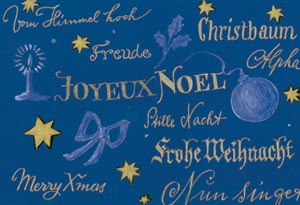 Vom Himmel hoch
Christbaum
Freude
Alpha
JOYEUX NOEL
Stille Nacht
Frohe Weihnacht
Merry Xmas
Nun singet